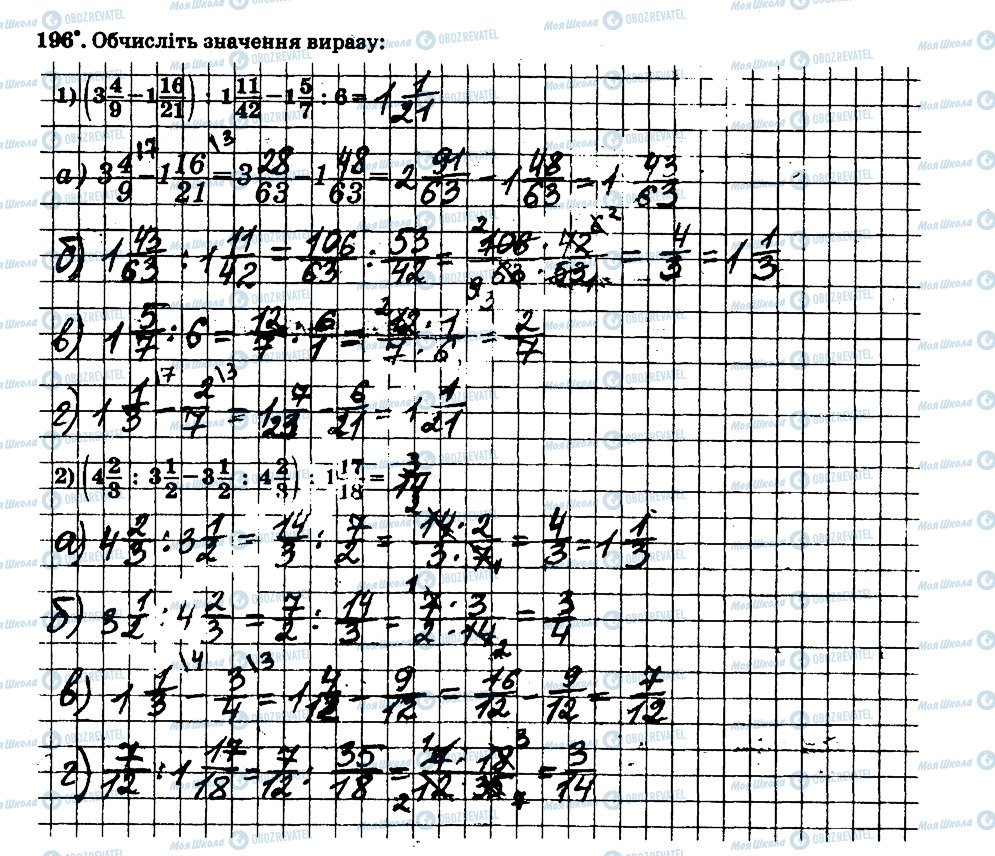 196°. Обчисліть значення виразу:
1) (3 4/9 − 1 16/21) : 1 11/42 − 1 5/7 : 6 = 1 1/21
а) 3 4/9 \7 − 1 16/21 \3 = 3 28/63 − 1 48/63 = 2 91/63 − 1 48/63 = 1 43/63
б) 1 43/63 : 1 11/42 = 106/63 : 53/42 = 106 · 42 / 63 · 53 = 4/3 = 1 1/3
в) 1 5/7 : 6 = 12/7 : 6/1 = 12 · 1 / 7 · 6 = 2/7
г) 1 1/3 \7 − 2/7 \3 = 1 7/21 − 6/21 = 1 1/21
2) (4 2/3 : 3 1/2 − 3 1/2 : 4 2/3) : 1 17/18 = 3/14
а) 4 2/3 : 3 1/2 = 14/3 : 7/2 = 14 · 2 / 3 · 7 = 4/3 = 1 1/3
б) 3 1/2 : 4 2/3 = 7/2 : 14/3 = 7 · 3 / 2 · 14 = 3/4
в) 1 1/3 \4 − 3/4 \3 = 1 4/12 − 9/12 = 16/12 − 9/12 = 7/12
г) 7/12 : 1 17/18 = 7/12 : 35/18 = 7 · 18 / 12 · 35 = 3/14
Моя Школа OBOZREVATEL